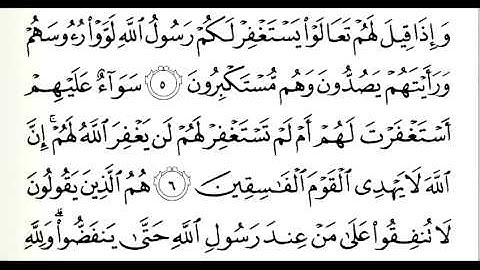 وَإِذَا قِيلَ لَهُمْ تَعَالَوْاْ يَسْتَغْفِرْ لَكُمْ رَسُولُ ٱللَّهِ لَوَّوْاْ رُءُوسَهُمْ
وَرَأَيْتَهُمْ يَصُدُّونَ وَهُم مُّسْتَكْبِرُونَ ٥ سَوَآءٌ عَلَيْهِمْ
أَسْتَغْفَرْتَ لَهُمْ أَمْ لَمْ تَسْتَغْفِرْ لَهُمْ لَن يَغْفِرَ ٱللَّهُ لَهُمْ ۚ إِنَّ
ٱللَّهَ لَا يَهْدِى ٱلْقَوْمَ ٱلْفَٰسِقِينَ ٦ هُمُ ٱلَّذِينَ يَقُولُونَ
لَا تُنفِقُواْ عَلَىٰ مَنْ عِندَ رَسُولِ ٱللَّهِ حَتَّىٰ يَنفَضُّواْ ۗ وَلِلَّهِ